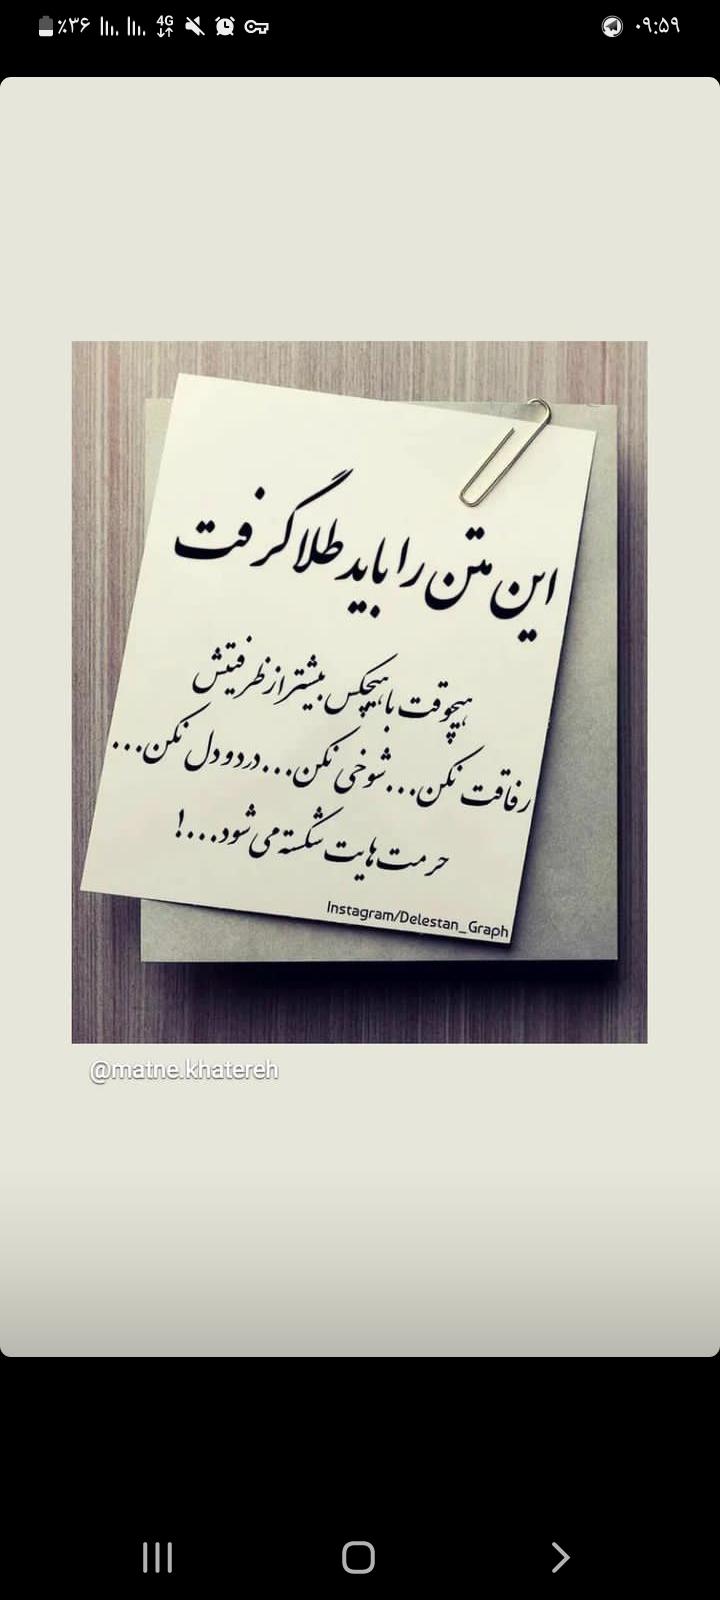 ٪۳۶ 4G ۰۹:۵۹
این متن را باید طلا گرفت
هیچوقت با هیچکس بیشتر از ظرفیتش
رفاقت نکن...شوخی نکن...دردودل نکن...
حرمت هایت شکسته می شود...!
Instagram/Delestan_Graph
@matne.khatereh